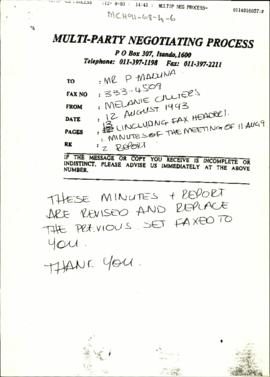 12- 8-93 : 14:42 : MULTIP NEG PROCESS-
MCH91-68-4-6
MULTI-PARTY NEGOTIATING PROCESS
P O Box 307, Isando,1600
Telephone: 011-397-1198 Fax: 011-397-2211
TO : MR P MADUNA
FAX NO : 333-4509
FROM : MELANIE CILLIERS
DATE : 12 AUGUST 1993
PAGES : 13 (INCLUDING FAX HEADER).
RE : MINUTES OF THE MEETING OF 11 AUG 9
& REPORT
IF THE MESSAGE OR COPY YOU RECEIVE IS INCOMPLETE OR
INDISTINCT, PLEASE ADVISE US IMMEDIATELY AT THE ABOVE
NUMBER.
THESE MINUTES + REPORT
ARE REVISED AND REPLACE
THE PREVIOUS SET FAXED TO
YOU.
THANK YOU.